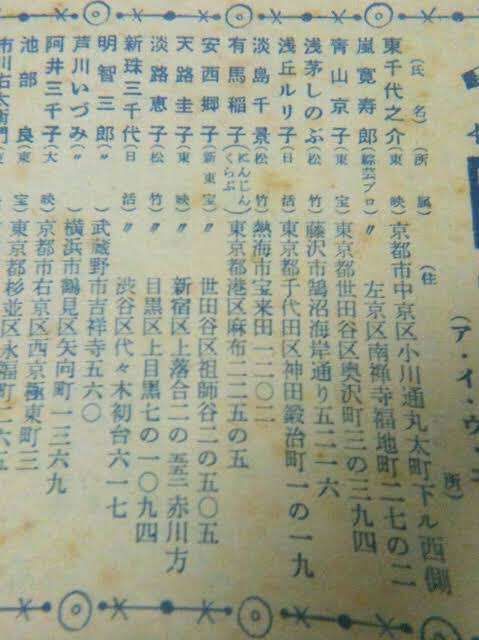 (ア・イ・ウ・エ
(氏名) (所属) (住所)
東千代之介(東映)京都市中京区小川通丸太町下ル西側
嵐寛寿郎(綜芸プロ)〃左京区南禅寺福地町二七の二
青山京子(東宝)東京都世田谷区奥沢町三の三九四
浅茅しのぶ(松竹)藤沢市鵠沼海岸通り五二一六
浅丘ルリ子(日活)東京都千代田区神田鍛治町一の一九
淡島千景(松竹)熱海市宝来田一二〇二
有馬稲子(にんじんくらぶ)東京都港区麻布二二五の五
安西郷子(新東宝)〃世田谷区祖師谷二の五〇五
天路圭子(東映)〃新宿区上落合二の五五三赤川方
淡路恵子(松竹)〃目黒区上目黒七の一〇九四
新珠三千代(日活)〃渋谷区代々木初台六一七
明智三郎(〃)武蔵野市吉祥寺五六〇
芦川いづみ(〃)横浜市鶴見区矢向町一三六九
阿井三千子(大映)京都市右京区西京極東町三
池部良(東宝)東京都杉並区永福町二六五
市川右太衛門(東